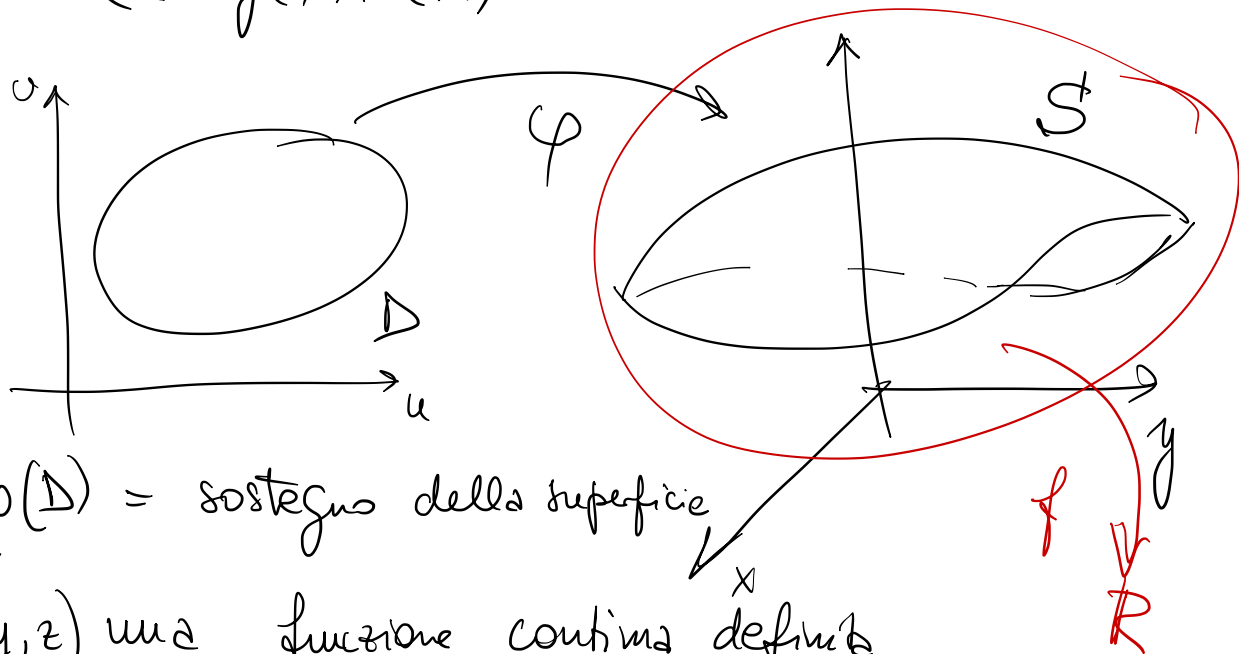 v
φ
S
D
u
y
(D) = sostegno della superficie
f
x
R
, z) una funzione continua definita